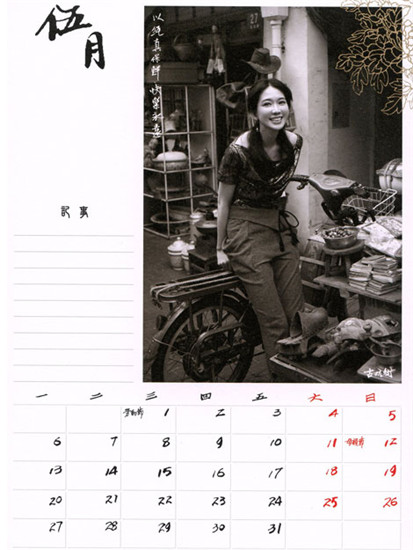 伍月
以純真作 快樂永遠
27
記事
一 二 三 四 五 六 日
勞動節 1 2 3 4 5
6 7 8 9 10 11 母親節 12
13 14 15 16 17 18 19
20 21 22 23 24 25 26
27 28 29 30 31